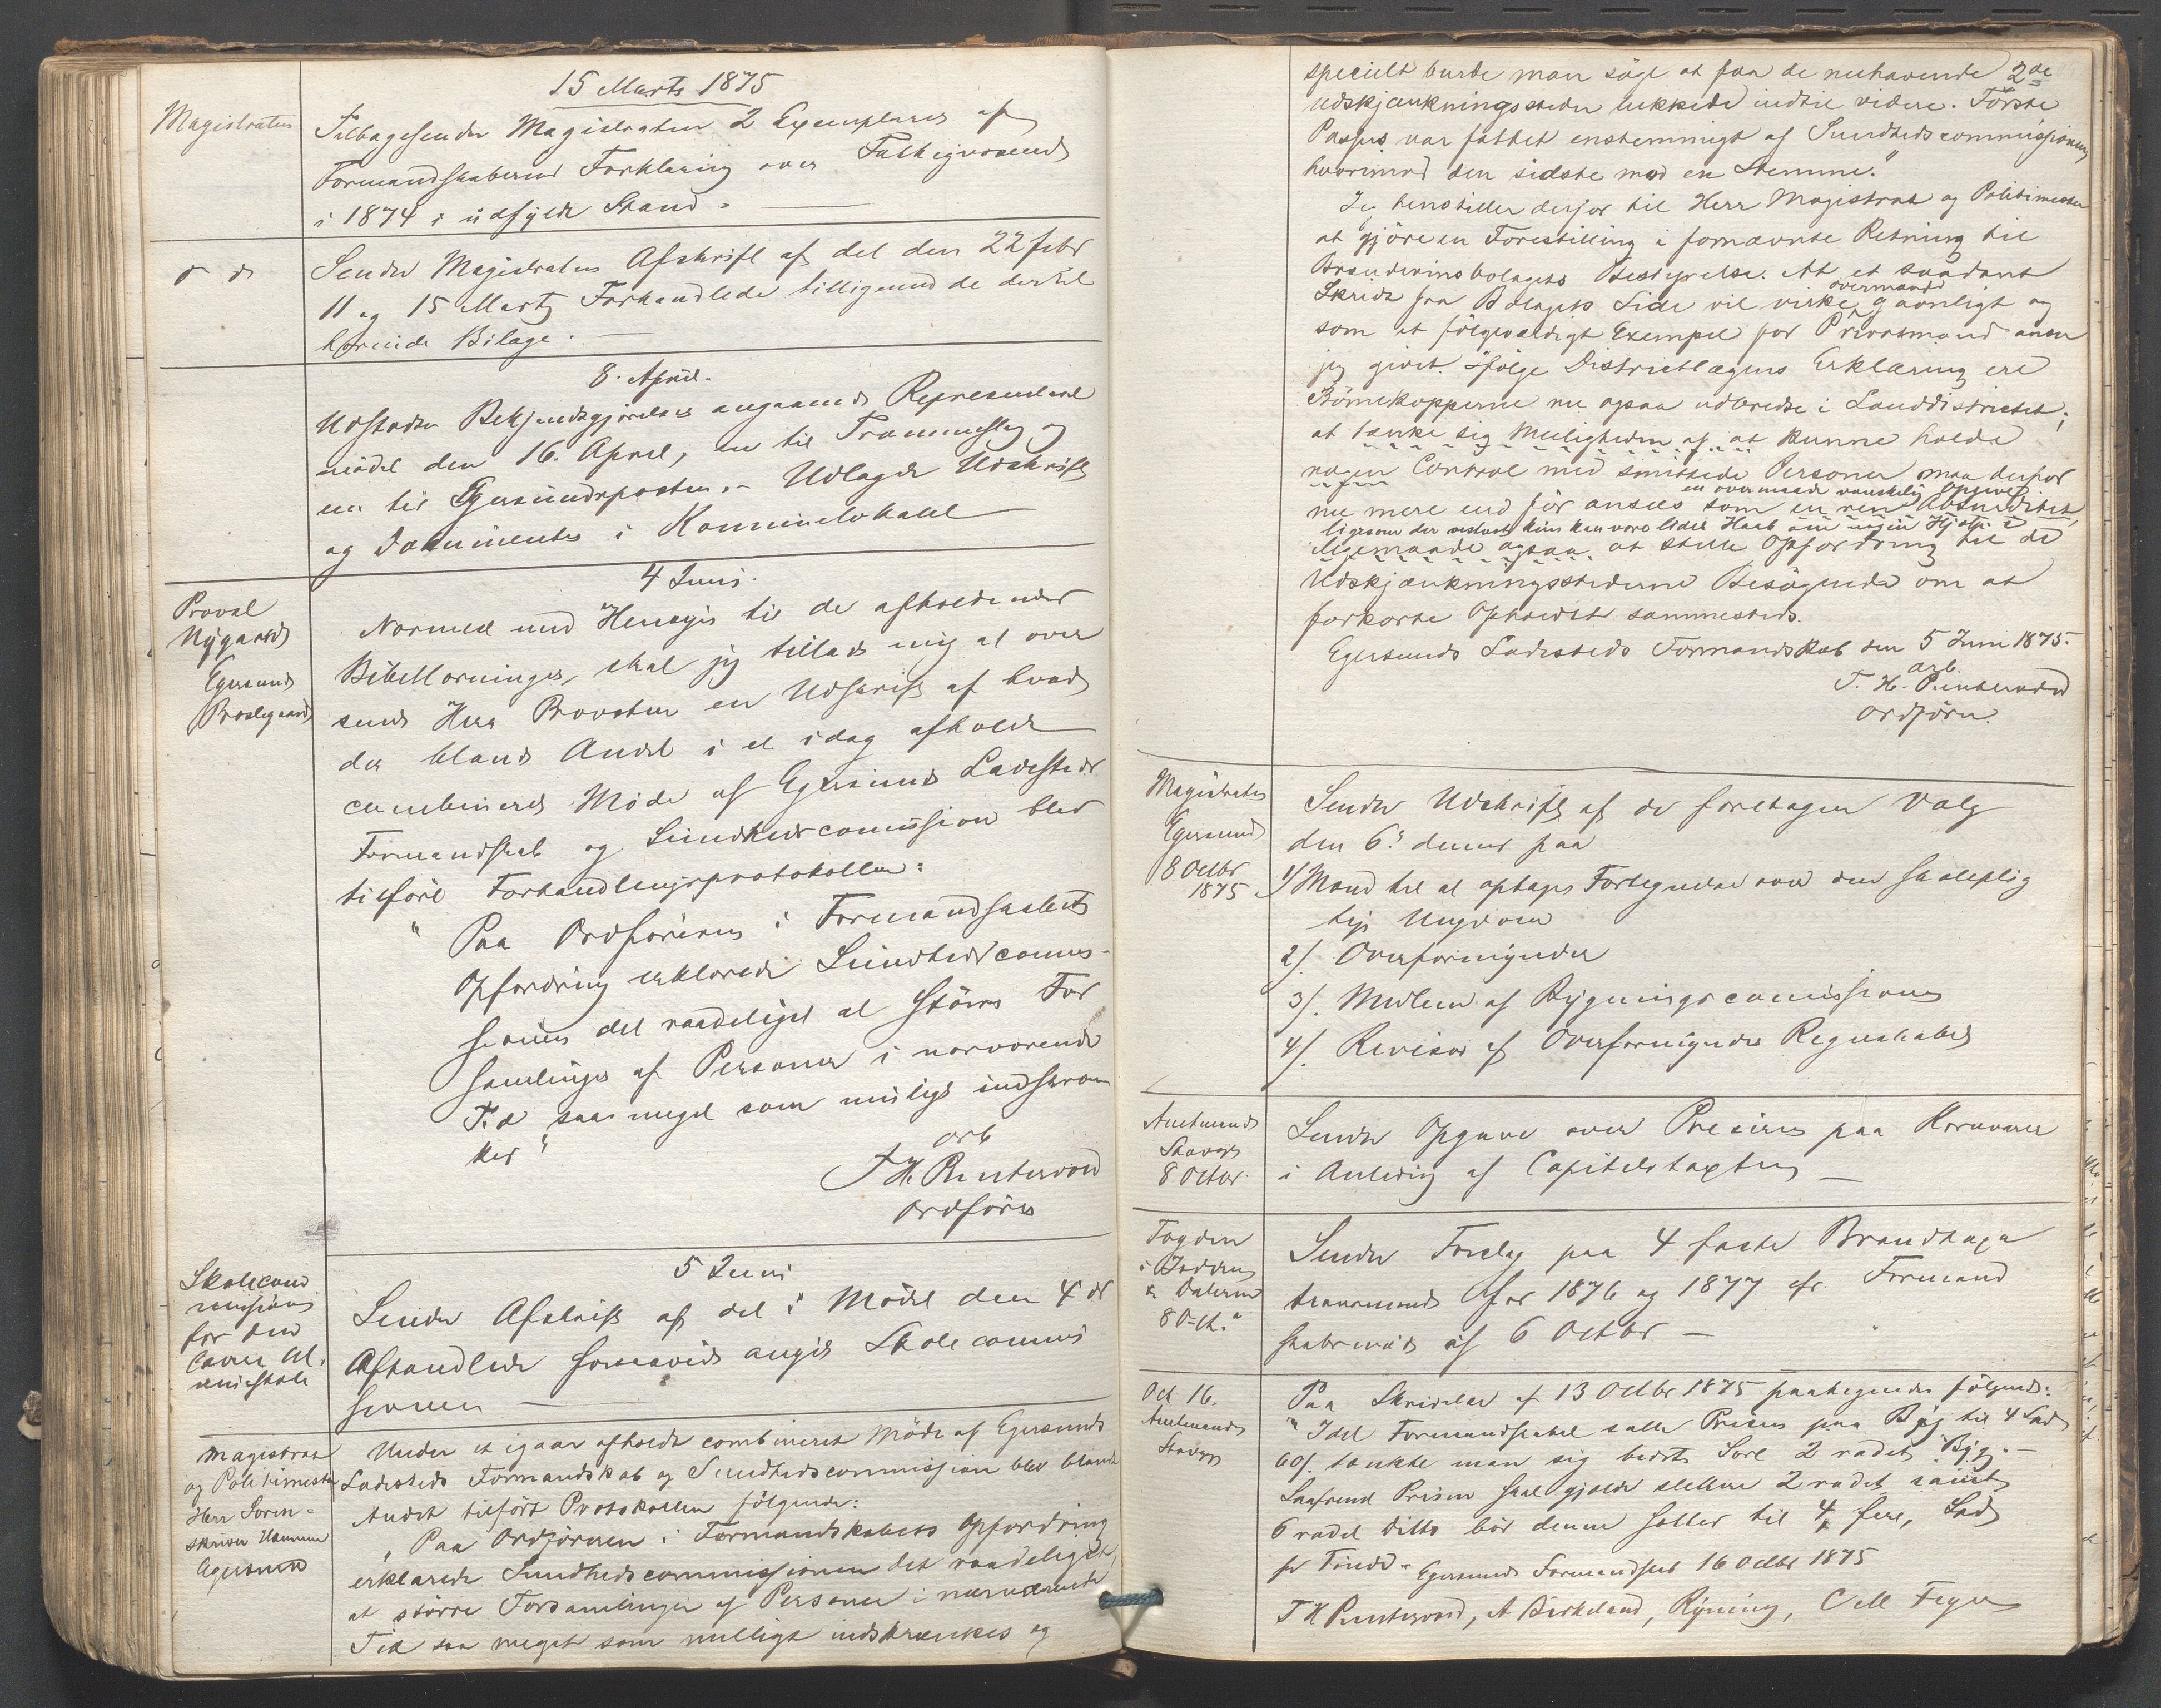 15 Marts 1875
Magistraten
Tilbagesender Magistraten 2 Exemplarer af
Formandskabernes Forklaring over Fattigvæsenets
i 1874 i udfyldt Stand.
d d
Sender Magistraten Afskrift af det den 22 febr
11 og 15 Marts Forhandlede tilligemed de dertil
hørende Bilage.
8. April.
Udstædte Bekjendtgjørelser angaaende Representant
mødet den 16. April, en til Trommeslag og
en til Egersundsposten. - Udlagde Udskrift
og Documenter i Kommunelokalet
4 Juni.
Provst
Nygaard
Egersund
Præstegaard
Normed med Hensyn til de afholdende
Bibellæsninger, skal jeg tillade mig at over
sende Herr Provsten en Udskrift af hvad
der blandt Andet i et idag afholdt
combineret Møde af Egersunds Ladesteds
Formandskab og Sundhedscomission blev
tilført Forhandlingsprotokollen:
"Paa Ordførerens i Formandskabets
Opfordring erklærede Sundhedscomis-
sionen det raadeligst at større For
samlinger af Personer i nærværende
Tid saa meget som muligt indskræn
kes"
arb
T H. Puntervold
Ordfører
5 Juni
Skolecom
missionen
for den
lavere Al.
mueskole
Sender Afskrift af det i Mødet den 4de
Afhandlede forsaavidt angik Skolecommis
sionen
Magistrat
og Politimester
Herr Soren-
skriver
Egersund
Under et igaar afholdt combineret Møde af Egersunds
Ladesteds Formandskab og Sundhedscommission blev blandt
Andet tilført Protokollen følgende:
"Paa Ordføreren i Formandskabets Opfordring
erklærede Sundhedscommissionen det raadeligst,
at større Forsamlinger af Personer i nærværende
Tid saa meget som muligt indskrænkes og
specielt burde man søge at faa de neihavende 2de
Udskjænkningssteder lukkede indtil videre. Første
Passus var fattet enstemmigt af Sundhedscommissionen
hvorimod den sidste mod en Stemme."
Jeg henstiller derfor til Herr Magistrat og Politimester
at gjøre en Forestilling i fornævnte Retning til
Brændevinsbolagets Bestyrelse. At et saadant
Skridt fra Bolagets Side vil virke overmaade gavnligt og
som et følgeværdigt Exempel for Privatmænd anser
jeg givet. Ifølge Districtlægens Erklæring ere
Børnekopperne nu ogsaa udbredte i Landdistriktet;
at tænke sig Muligheden af at kunne holde
nogen Control med smittede Personer maa derfor
nu mere end før ansees som en ren Absurditet,
en overmaade vanskelig Opgave
ligesom der
iligemaade ogsaa at stille Opfordring til de
Udskjænkningsstederne Besøgende om at
forkorte Opholdet sammesteds.
Egersunds Ladesteds Formandskab den 5 Juni 1875.
arb.
T. H. Puntervold
Ordfører.
Magistraten
Egersund
8 Octbr
1875
Sender Udskrift af de foretagen Valg
den 6te dennes paa
1/ Mand til at optage Fortegnelse over den skoleplig
tige Ungdom
2/. Overformynder
3/. Medlem af Bygningscomissionen
4/. Revisor af Overformynder Regnskabet
Amtmand
Stavgr
8 Octbr.
Sender Opgave over Priserne paa Kornvarer
i Anledning af Capitelstaxten
Fogden
i Jæderen
& Dalerne
8 Oct."
Sender Forslag paa 4 faste Brandtaxa
tionsmænd for 1876 og 1877 efr. Formand
skabsmøde af 6 Octbr -
Oct 16.
Amtmand
Stavgr
Paa Skrivelse af 13 Octbr 1875 paategnedes følgende:
"Idet Formandskabet satte Prisen paa Byg til 4 Spd
60 s. tænkte man sig bedste Sort 2 radet Byg. -
Saafremt Prisen skal gjælde slettere 2 radet samt
6 radet Ditto bør denne sættes til 4, fire, Spd
pr Tønde. - Egersunds Formandskab 16 Octbr 1875
T H Puntervold, A Birkeland, Rÿning, C M Feyer